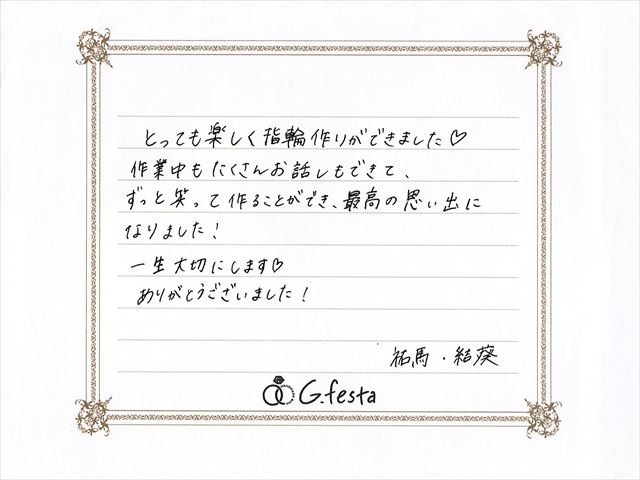 とっても楽しく指輪作りができました♡
作業中もたくさんお話しもできて、
ずっと笑って作ることができ、最高の思い出に
なりました!
一生大切にします♡
ありがとうございました!
祐馬・結葵
G.festa